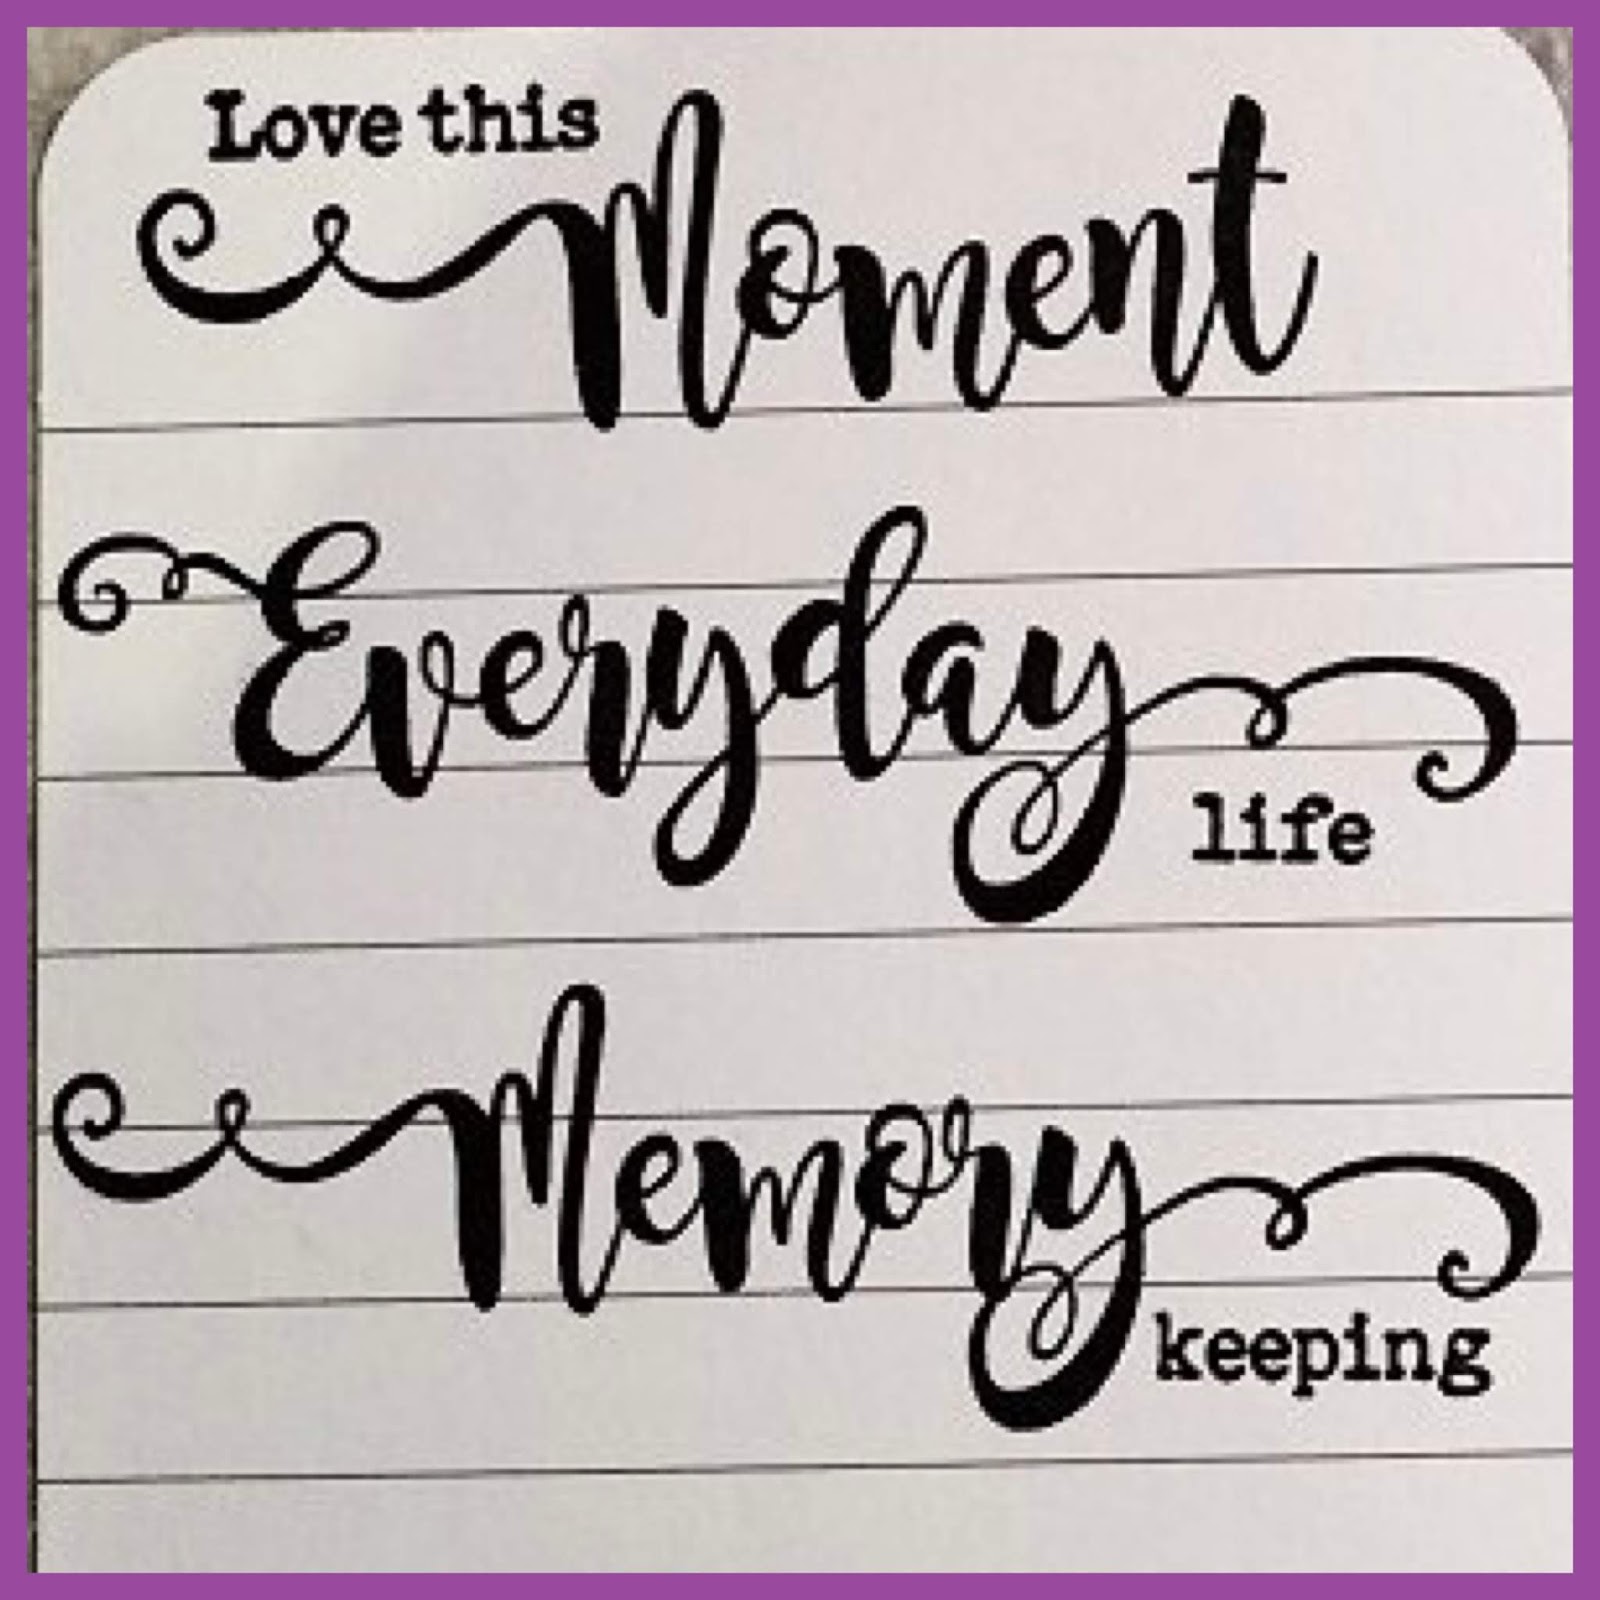 Love this
Moment
Everyday
life
Memory
keeping